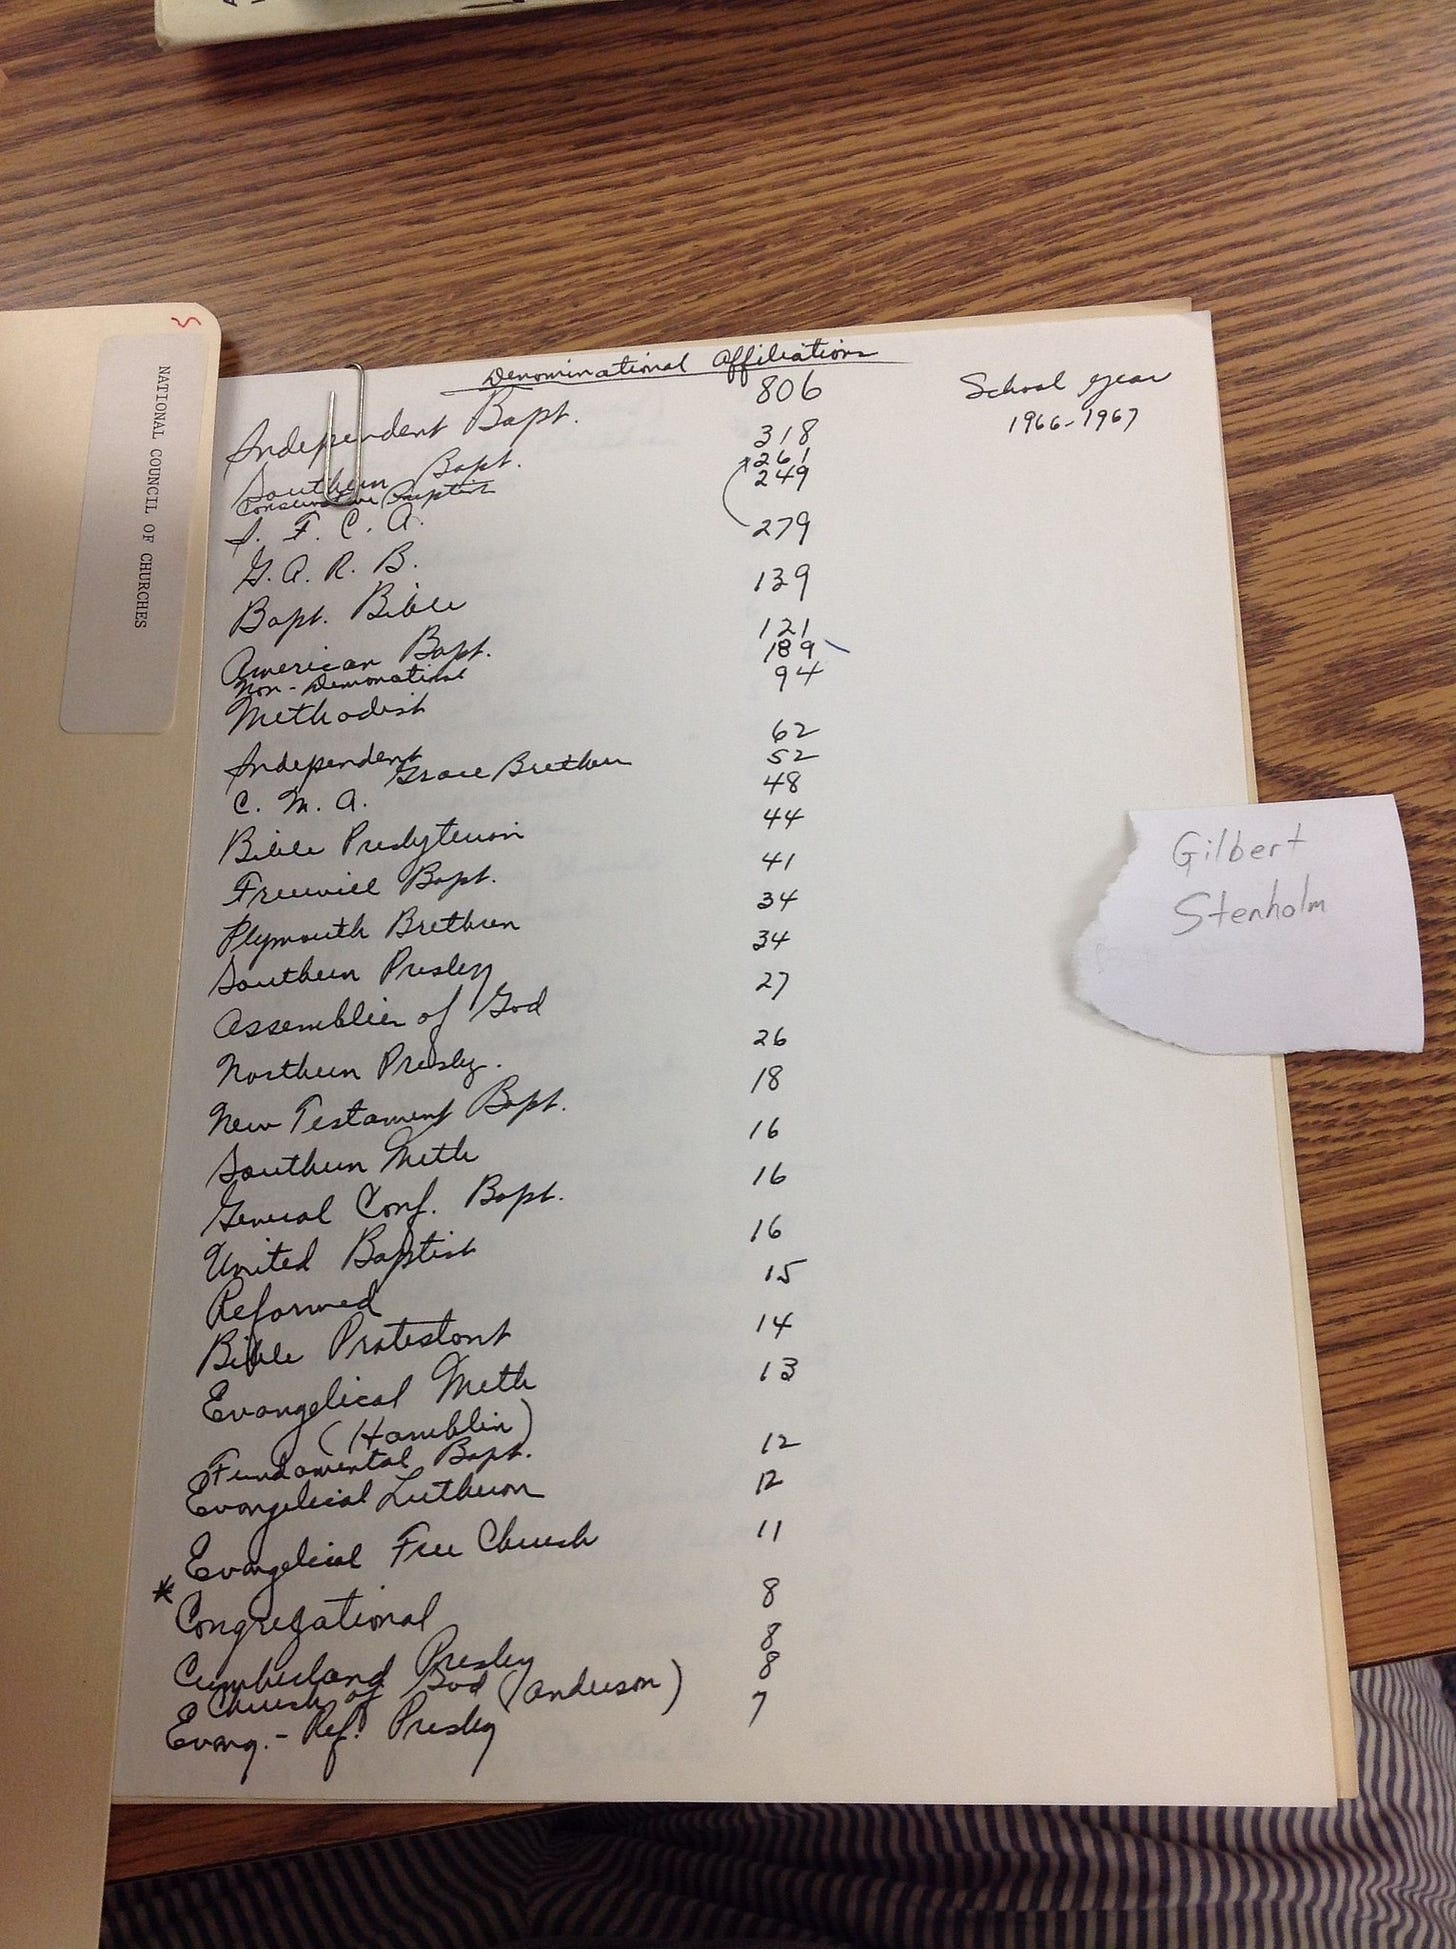 NATIONAL COUNCIL OF CHURCHES
Denominational Affiliations
School Year
1966-1967
Independent Bapt. 806
Southern Bapt. 318
Conservative Baptist 261
I. F. C. A. 249
G. A. R. B. 279
Bapt. Bible 139
American Bapt. 121
Non-Denominational 189
Methodist 94
Independent 62
Grace Brethren 52
C. M. A. 48
Bible Presbyterian 44
Freewill Bapt. 41
Plymouth Brethren 34
Southern Presby 34
Assemblies of God 27
Northern Presby. 26
New Testament Bapt. 18
Southern Meth 16
General Conf. Bapt. 16
United Baptist 16
Reformed 15
Bible Protestant 14
Evangelical Meth 13
(Hamblin)
Fundamental Bapt. 12
Evangelical Lutheran 12
Evangelical Free Church 11
* Congregational 8
Cumberland Presby 8
Church of God (Anderson) 8
Evang.-Ref. Presby 7
Gilbert
Stenholm